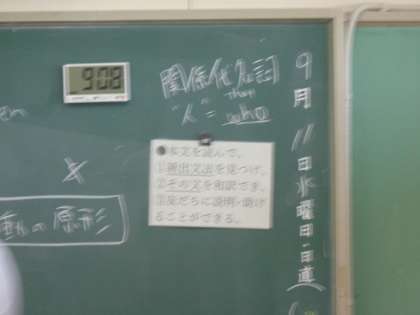 9:08
関係代名詞
that
"人" = who
9月11日水曜日・日直
en
●本文を読んで、
①新出文法を見つけ、
②その文を和訳でき、
③友だちに説明・助け
ることができる。
動の原形